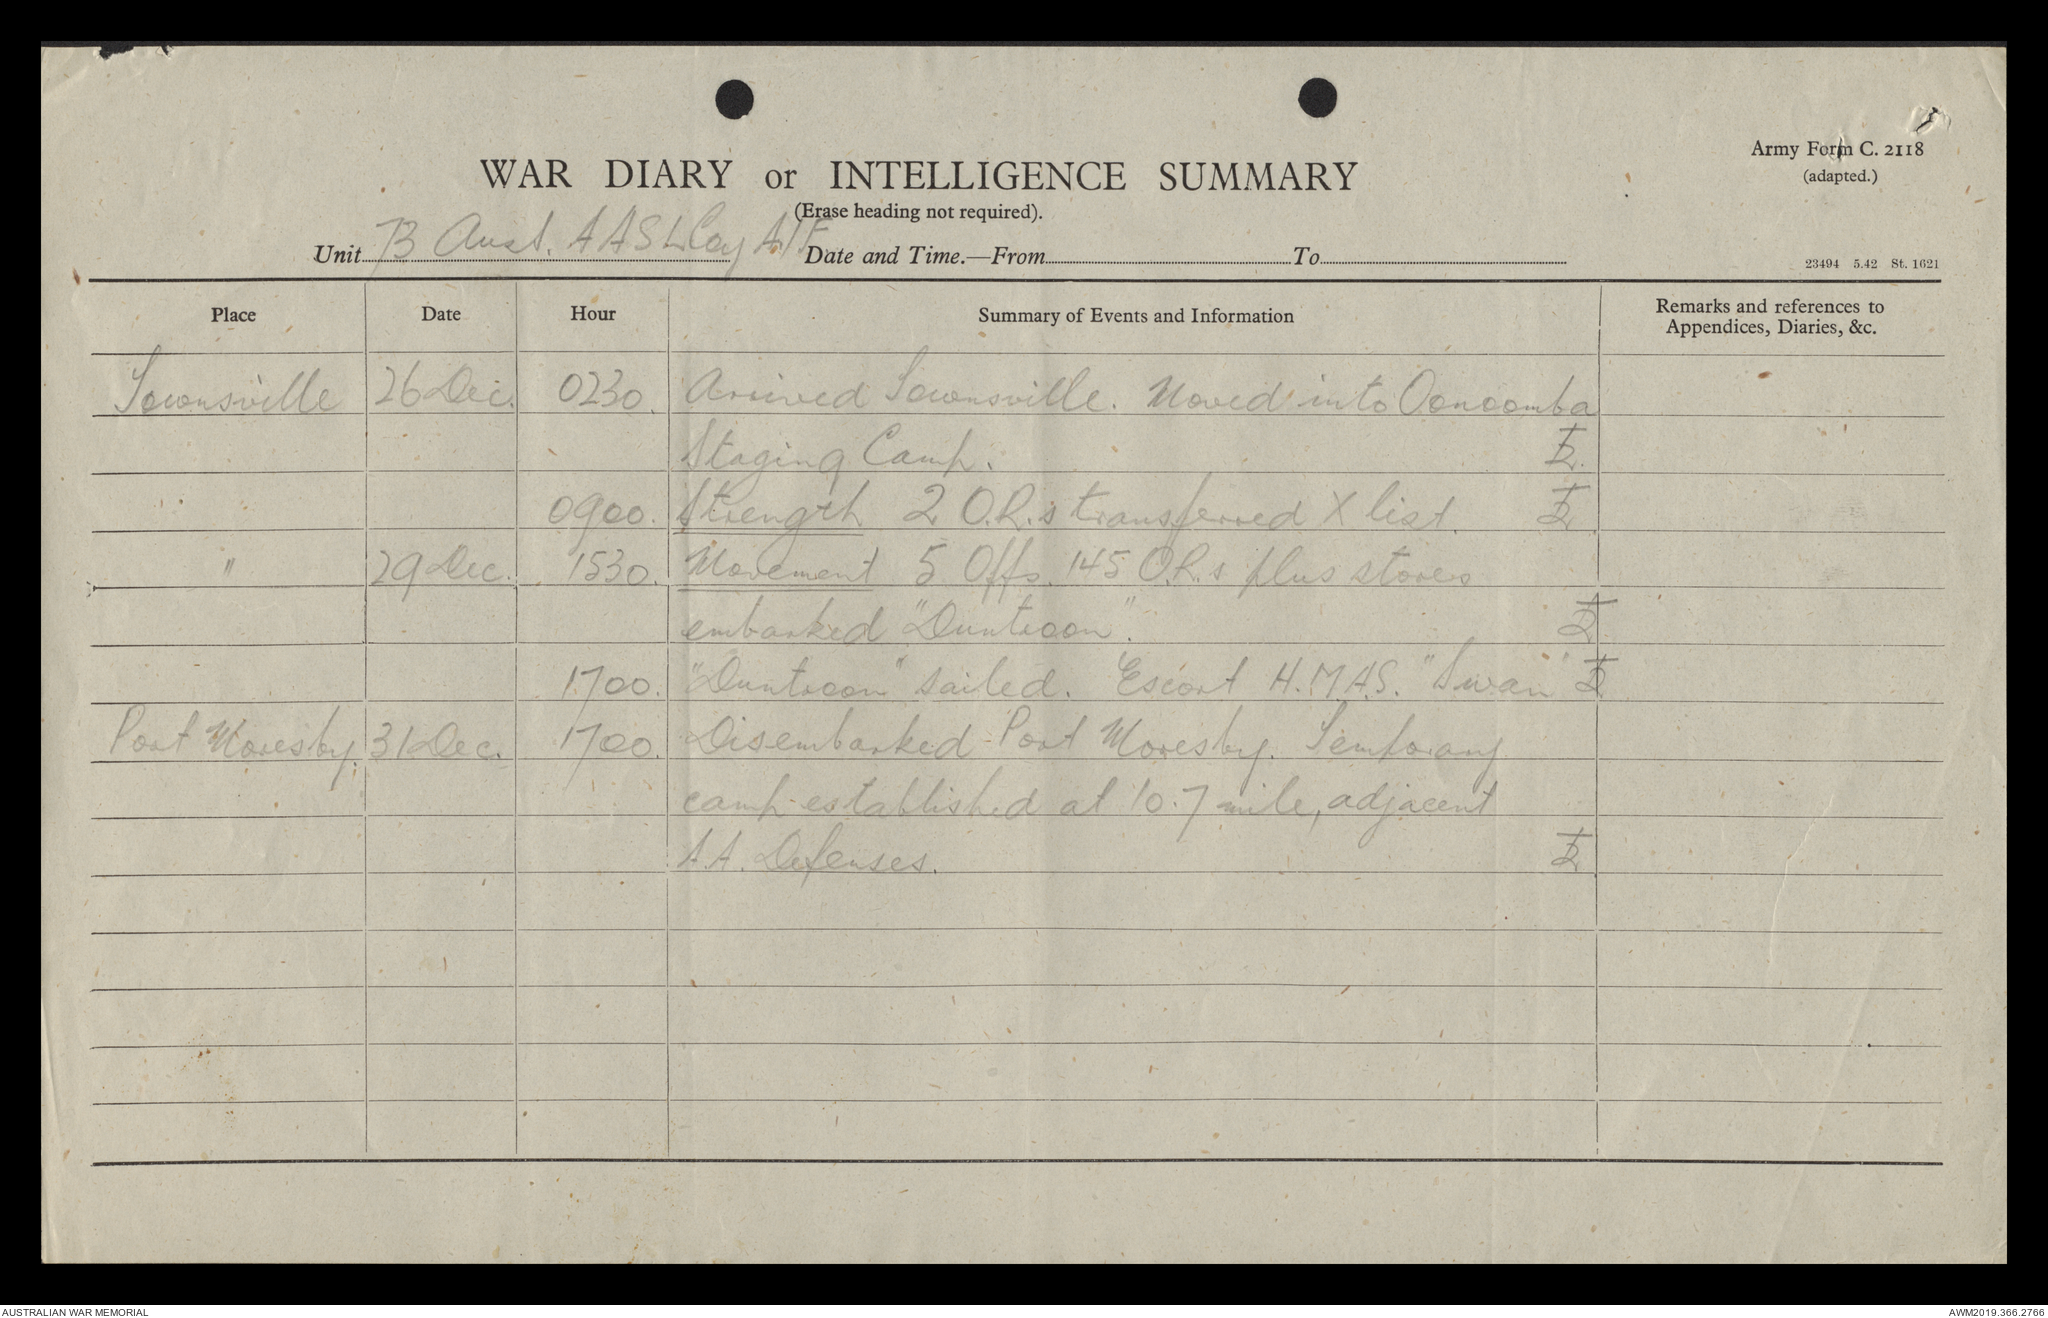 Army Form C. 2118
(adapted.)
WAR DIARY or INTELLIGENCE SUMMARY
(Erase heading not required).
Unit 73 Aust. A A S L Coy AIF Date and Time.—From To
23494 5.42 St. 1621
Place Date Hour Summary of Events and Information Remarks and references to
Appendices, Diaries, &c.
Townsville 26 Dec. 0230. Arrived Townsville. Moved into Oonoomba
Staging Camp.
0900. Strength 2 O.R.s transferred X list.
" 29 Dec. 1530. Movement 5 Offs. 145 O.R.s plus stores
embarked "Duntroon".
1700. "Duntroon" sailed. Escort H.M.A.S. "Swan"
Port Moresby. 31 Dec. 1700. Disembarked Port Moresby. Temporary
camp established at 10.7 mile, adjacent
A.A. Defenses.
AUSTRALIAN WAR MEMORIAL AWM2019.366.2766